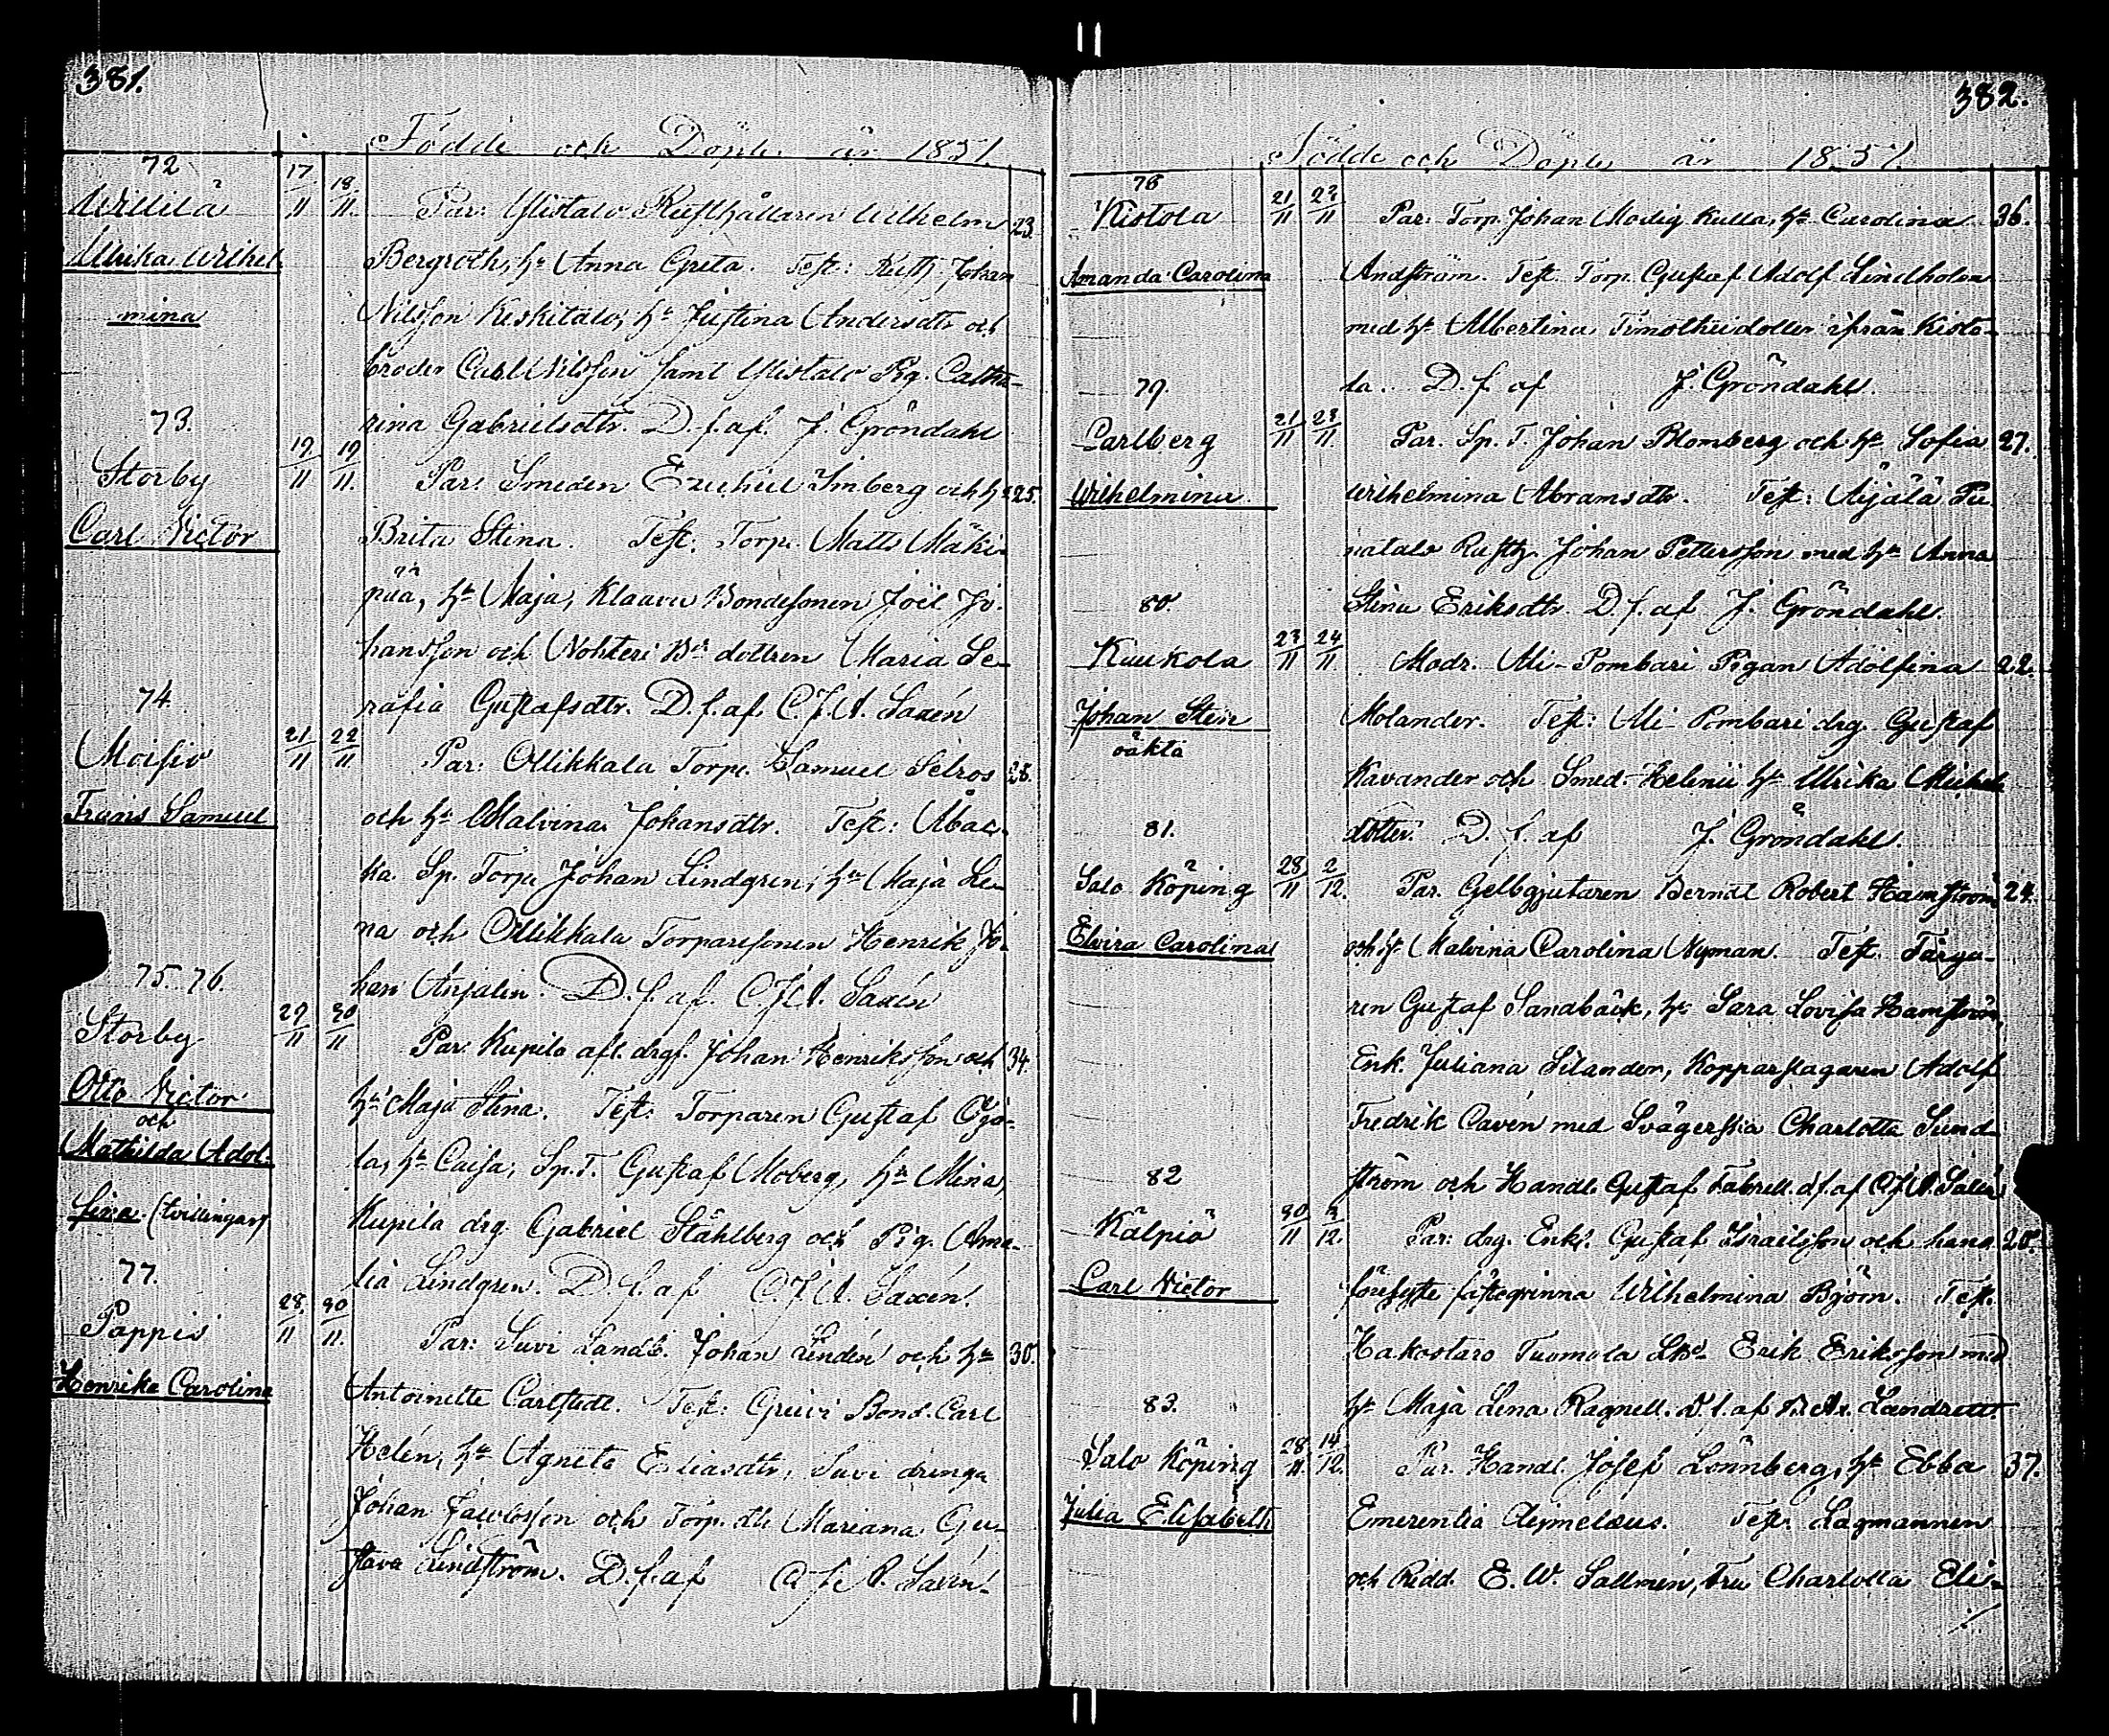 381.
Födde och Döpte år 1857
72
Willilä 17/11 18/11. Par: Ylistalo Rusthållaren Wilhelm 23.
Ulrika Wilhel-
mina
Bergroth, h. Anna Greta. Test: Rusth. Johan
Nilsson Keskitalo, h. Justina Andersdtr och
broder Carl Nilsson samt Ylistalo Pig. Catha-
rina Gabrielsdtr. D. f. af. J. Gröndahl
73.
Storby 19/11 19/11. Par: Smeden Ezechiel Imberg och h. 25.
Carl Victor
Brita Stina. Test: Torp. Matts Mäki-
pää, hu Maja, Klaavu Bondesonen Joël Jo-
hansson och Nohteri Bde dottren Maria Se-
rafia Gustafsdtr. D. f. af. C. J. A. Saxén
74.
Moisio 21/11 22/11 Par: Ollikkala Torp. Samuel Selros 28.
Frans Samuel
och hu Malvina Johansdtr. Test: Abac-
ka Sp. Torp. Johan Lindgren, hu Maja Le-
na och Ollikkala Torparesonen Henrik Jo-
han Anjalin. D. f. af. C. J. A. Saxén
75. 76.
Storby 29/11 30/11 Par: Kupila afl. drgs. Johan Henriksson och 34.
Otto Victor
och
Mathilda Adol-
fina (tvillingar)
hu Maja Stina. Test: Torparen Gustaf Ojo-
la, hu Caisa, Sp. T. Gustaf Moberg, hu Mina,
Kupila drg. Gabriel Ståhlberg och Pig. Ama-
lia Lindgren. D. f. af C. J. A. Saxén.
77.
Pappis 28/11 30/11. Par: Suvi Landb. Johan Lindén och hu 30.
Henrika Carolina
Antoinette Carlstedt. Test: Bond. Carl
Helén, hu Agneta Eliasdtr, Suvi drenga
Johan Jacobsson och Torp. dtr Mariana Gu-
stava Lindström. D. f. af Saxén.
382.
Födde och Döpte år 1857.
78
Kistola 21/11 22/11 Par: Torp. Johan Modig Kulla, hu Carolina 36.
Amanda Carolina
Andström. Test. Torp. Gustaf Adolf Lindholm
med hu Albertina Timotheidotter ifrån Kisto-
la. D. f. af J. Gröndahl.
79.
Carlberg 21/11 23/11 Par. Sp. T. Johan Blomberg och hu Sofia 27.
Wilhelmina
Wilhelmina Abramsdtr. Test: Äijälä Pu-
natalo Rusth. Johan Pettersson med hu Anna
Stina Eriksdtr. D. f. af J. Gröndahl.
80.
Kuukola 23/11 24/11 Modr. Ali-Pombari Pigan Adolfina 22.
Johan Sten
oäkta
Molander. Test: Ali-Pombari drg. Gustaf
Kavander och Smed Helenii hu Ulrika Michels
dotter. D. f. af J. Gröndahl.
81.
Salo Köping 28/11 2/12. Par. Gelbgjutaren Berndt Robert Hamström 24.
Elvira Carolina
och h. Malvina Carolina Nyman. Test. Färga-
ren Gustaf Sandbäck, h. Sara Lovisa Hamström,
Enk. Juliana Silander, Kopparslagaren Adolf
Fredrik Cavén med Svägerska Charlotta Sund-
ström och Handl. Gustaf Fabrell. d. f. af C. J. A. Saxén
82
Kälpiö 30/11 3/12. Par: drg. Enkl. Gustaf Israilsson och hans 20.
Carl Victor
föresyfte fästeqvinna Wilhelmina Björn. Test.
Kakostaro Tuomola Erik Eriksson med
h. Maja Lena Ragnell. D. f. af Landrett.
83.
Salo Köping 28/11. 14/12. Par. Handl. Josef Lönnberg, hu Ebba 37.
Julia Elisabeth
Emerentia Aejmelæus. Test. Lagmannen
och Ridd. E. W. Sallmén, Fru Charlotta Elis-
./.